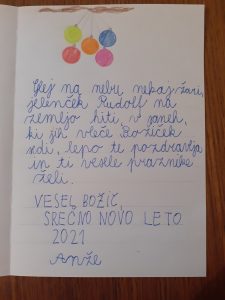 Glej na nebu nekaj žari,
jelenček Rudolf na
zemljo hiti, v saneh,
ki jih vleče Božiček
sedi, lepo te pozdravlja
in ti vesele praznike
želi.
VESEL BOŽIČ,
SREČNO NOVO LETO
2021
Anže